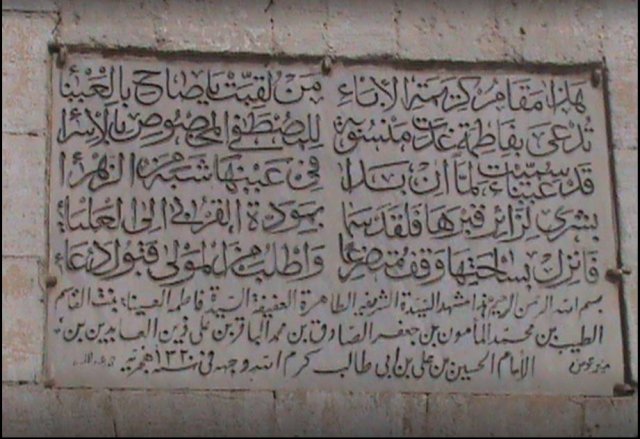 هذا مقام كريمة الأباء من لقبت ياصاح بالعيناء
تدعى بفاطمة غدت منسوبة للمصطفى المخصوص بالإسرا
قد سميت عيناء لما أن بدا في عينها شبه من الزهرا
بشرى لزائر قبرها فلقد سما بمودة القربى الى العلياء
فانزل بساحتها وقف متضرعا واطلب من المولى قبول دعاء
بسم الله الرحمن الرحيم هذا مشهد السيدة الشريفة الطاهرة العفيفة السيدة فاطمة العيناء بنت القاسم
الطيب بن محمد المأمون بن جعفر الصادق بن محمد الباقر بن علي زين العابدين بن
الأمام الحسين بن علي بن ابي طالب كرم الله وجهه في سنة ١٣٢٠ هجرية